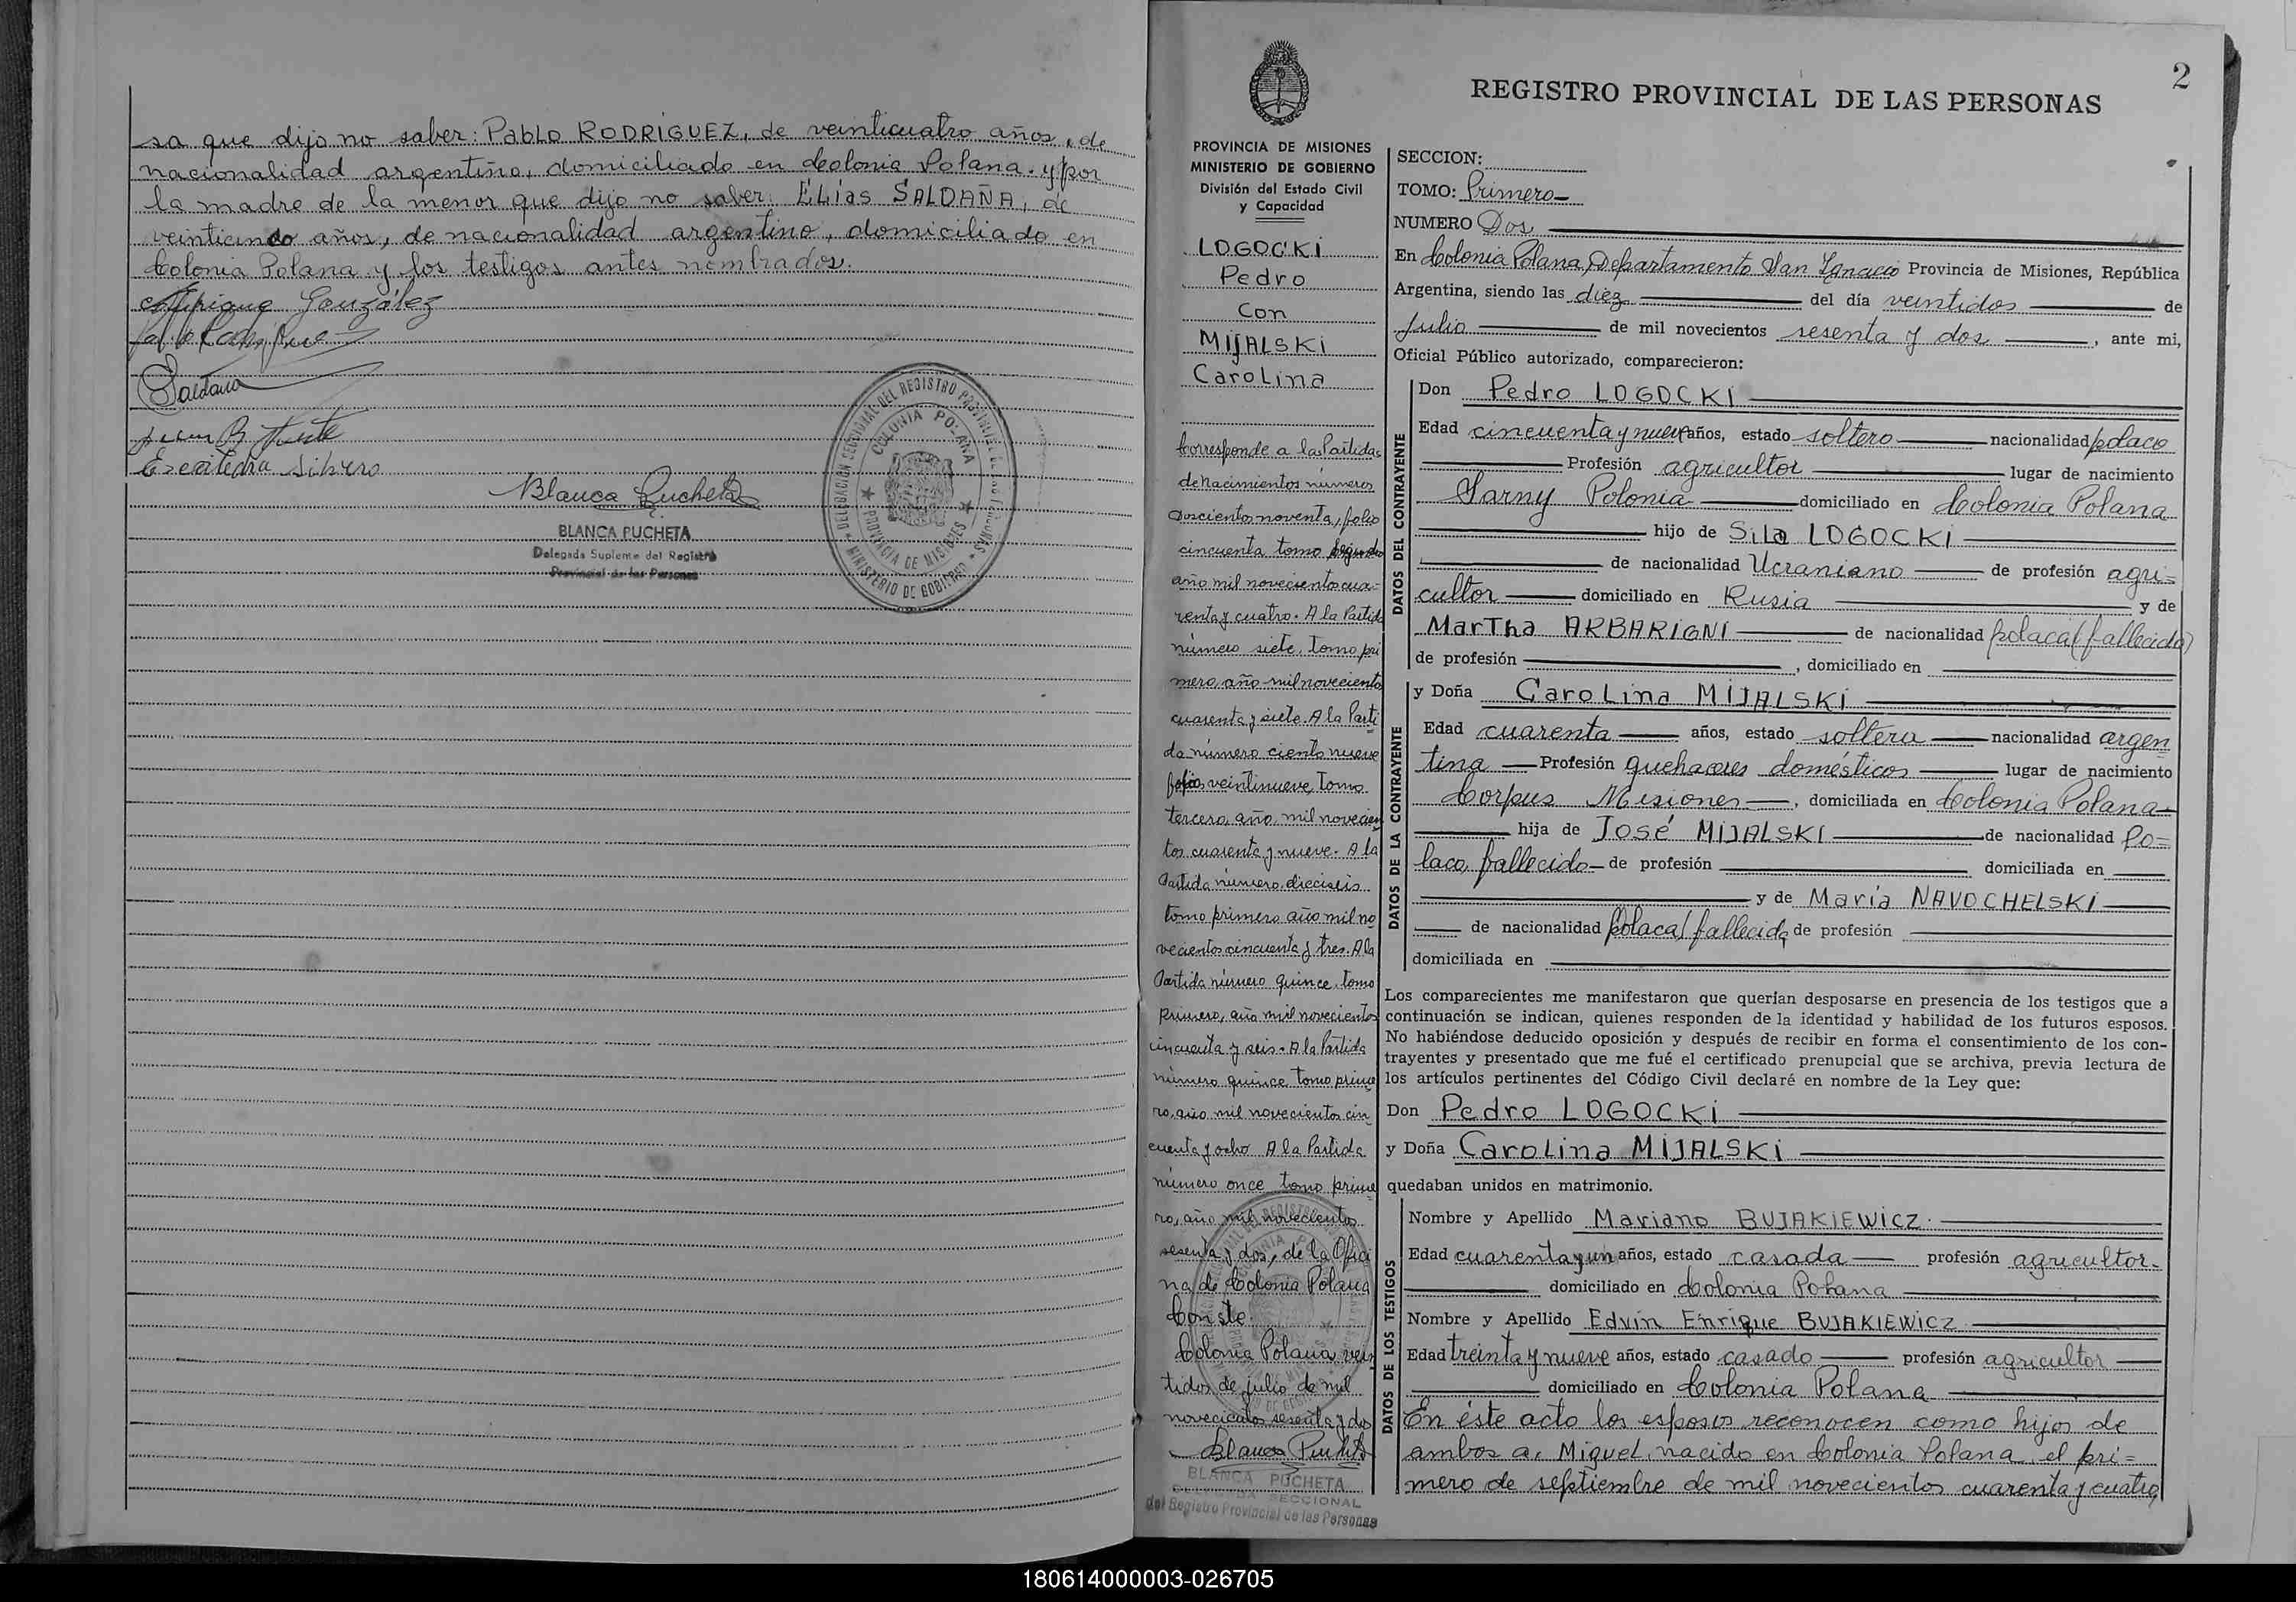 sa que dijo no saber: Pablo RODRIGUEZ, de veinticuatro años, de
nacionalidad argentina, domiciliado en Colonia Polana. y por
la madre de la menor que dijo no saber: ELías SALDAÑA, de
veinticinco años, de nacionalidad argentino, domiciliado en
Colonia Polana y los testigos antes nombrados.
González
Saldaña
Blanca Pucheta
BLANCA PUCHETA
Delegada Suplente del Registro
Provincial de las Personas
DELEGACION SECCIONAL DEL REGISTRO PROVINCIAL DE LAS PERSONAS
COLONIA POLANA
PROVINCIA DE MISIONES
MINISTERIO DE GOBIERNO
2
REGISTRO PROVINCIAL DE LAS PERSONAS
PROVINCIA DE MISIONES
MINISTERIO DE GOBIERNO
División del Estado Civil
y Capacidad
LOGOCKI
Pedro
Con
MIJALSKI
Carolina
Corresponde a las Partidas
de nacimientos números
doscientos noventa, folio
cincuenta tomo segundo
año mil novecientos cua-
renta y cuatro. A la Partida
número siete, tomo pri
mero, año mil novecientos
cuarenta y siete. A la Parti
da número ciento nueve
folio veintinueve, tomo
tercero, año mil novecien
tos cuarenta y nueve. A la
Partida número dieciseis
tomo primero año mil no
vecientos cincuenta y tres. A la
Partida número quince, tomo
primero, año mil novecientos
cincuenta y seis. A la Partida
número quince, tomo prime
ro, año mil novecientos cin
cuenta y ocho A la Partida
número once tomo prime
ro, año mil novecientos
sesenta y dos, de la Ofici
na de Colonia Polana
Conste.
Colonia Polana, vein
tidos de julio de mil
novecientos sesenta y dos
Blanca Pucheta
BLANCA PUCHETA
SECCIONAL
del Registro Provincial de las Personas
SECCION:
TOMO: Primero
NUMERO Dos
En Colonia Polana, Departamento San Ignacio Provincia de Misiones, República
Argentina, siendo las diez del día veintidos de
Julio de mil novecientos sesenta y dos, ante mi,
Oficial Público autorizado, comparecieron:
DATOS DEL CONTRAYENTE
Don Pedro LOGOCKI
Edad cincuenta y nueve años, estado soltero nacionalidad polaco
Profesión agricultor lugar de nacimiento
Sarny Polonia domiciliado en Colonia Polana
hijo de Sila LOGOCKI
de nacionalidad Ucraniano de profesión agri=
cultor domiciliado en Rusia y de
Martha ARBARIGNI de nacionalidad polaca (fallecida)
de profesión , domiciliado en
DATOS DE LA CONTRAYENTE
y Doña Carolina MIJALSKI
Edad cuarenta años, estado soltera nacionalidad argen
tina Profesión quehaceres domésticos lugar de nacimiento
Corpus Misiones, domiciliada en Colonia Polana
hija de José MIJALSKI de nacionalidad Po=
laco, fallecido de profesión domiciliada en
y de María NAVOCHELSKI
de nacionalidad polaca/fallecida de profesión
domiciliada en
Los comparecientes me manifestaron que querían desposarse en presencia de los testigos que a
continuación se indican, quienes responden de la identidad y habilidad de los futuros esposos.
No habiéndose deducido oposición y después de recibir en forma el consentimiento de los con-
trayentes y presentado que me fué el certificado prenupcial que se archiva, previa lectura de
los artículos pertinentes del Código Civil declaré en nombre de la Ley que:
Don Pedro LOGOCKI
y Doña Carolina MIJALSKI
quedaban unidos en matrimonio.
DATOS DE LOS TESTIGOS
Nombre y Apellido Mariano BUJAKIEWICZ
Edad cuarenta y un años, estado casada profesión agricultor
domiciliado en Colonia Polana
Nombre y Apellido Edvin Enrique BUJAKIEWICZ
Edad treinta y nueve años, estado casado profesión agricultor
domiciliado en Colonia Polana
En éste acto los esposos reconocen como hijos de
ambos a: Miguel, nacido en Colonia Polana, el pri=
mero de septiembre de mil novecientos cuarenta y cuatro,
180614000003-026705